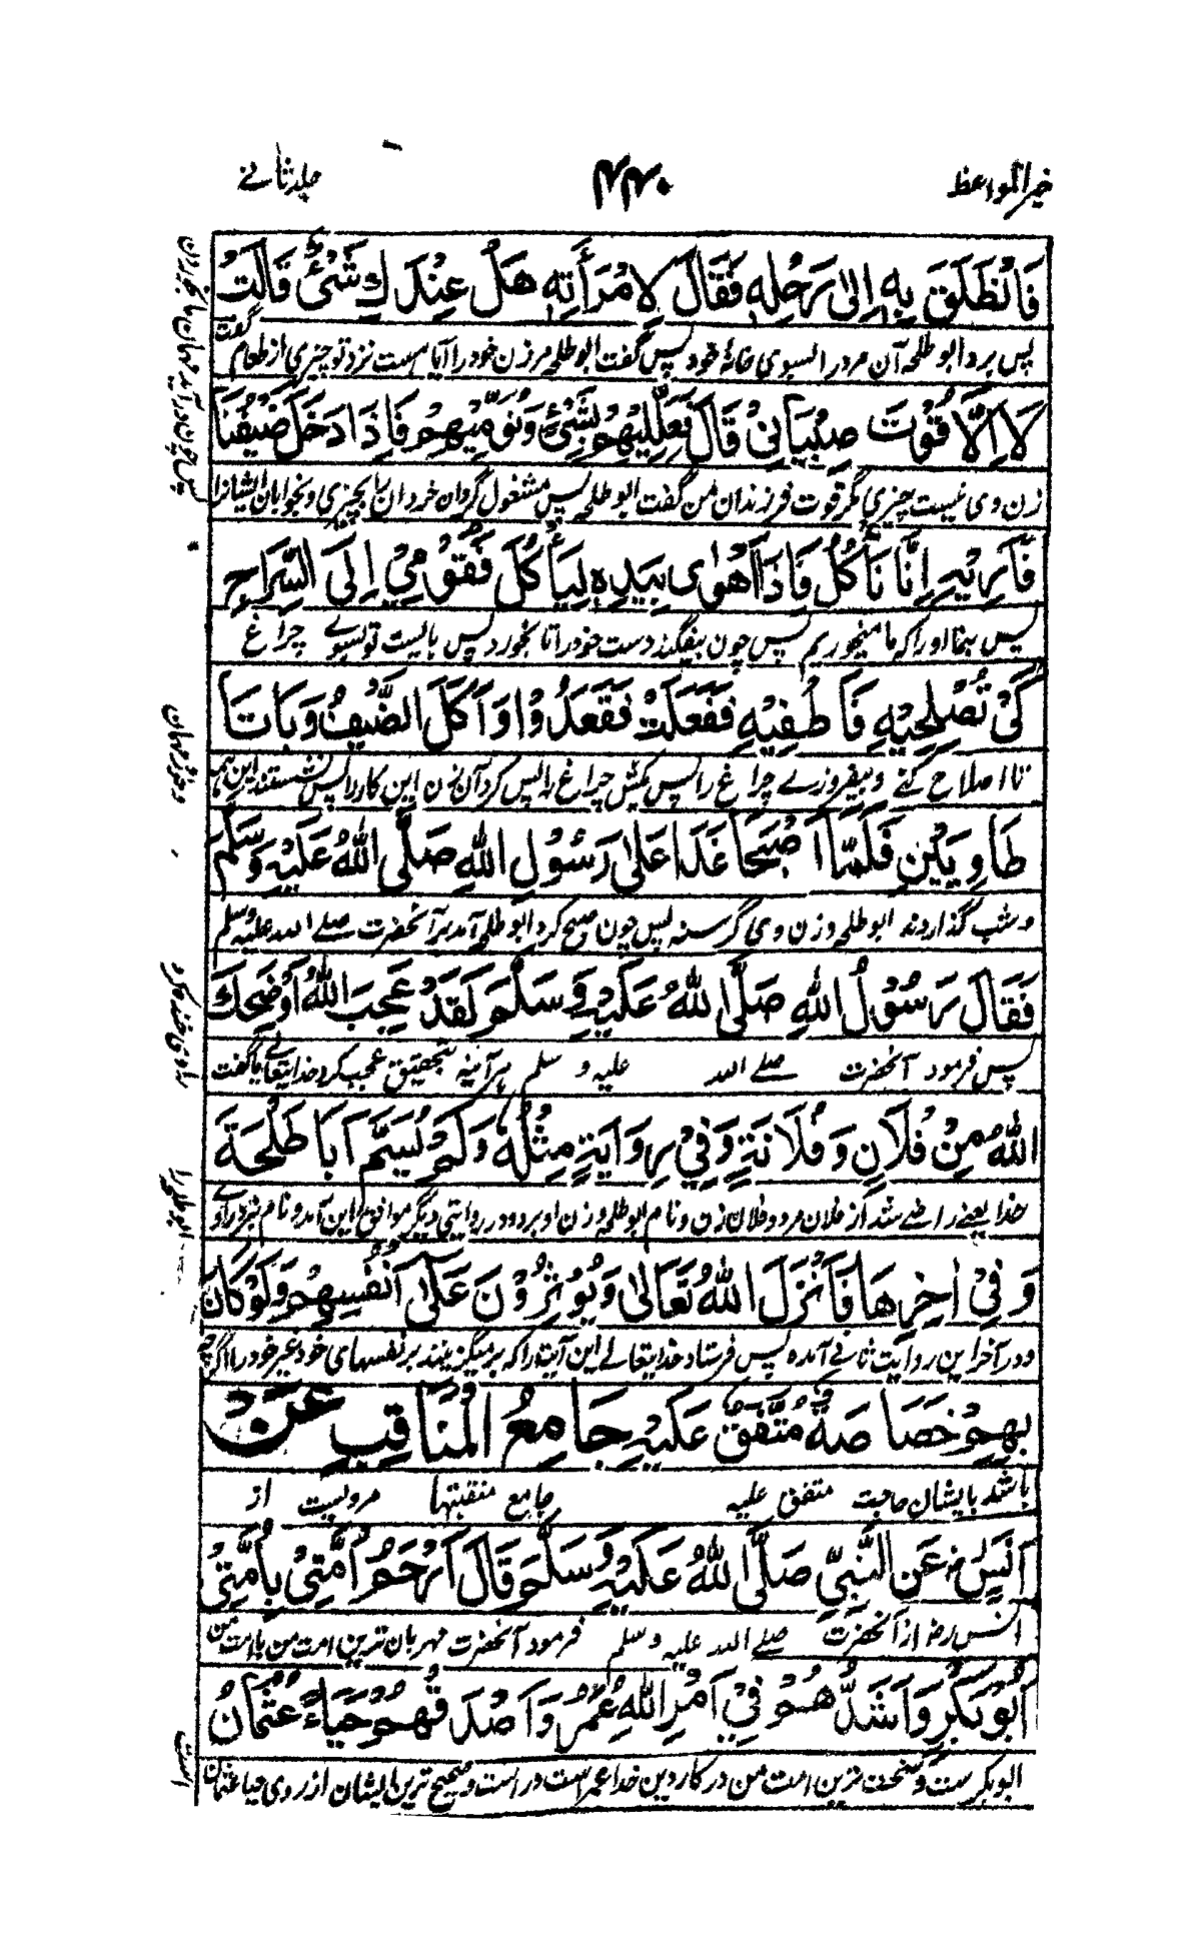 خیر المواعظ ۴۴۰ جلد ثانے
فَانْطَلَقَ بِهٖ اِلٰی رَحْلِهٖ فَقَالَ لِامْرَأَتِهٖ هَلْ عِنْدَكِ شَیْءٌ قَالَتْ
پس برد ابو طلحه آن مرد را بسوی خانهٔ خود پس گفت ابو طلحه مر زن خود را آیا هست نزد تو چیزی از طعام گفت
لَا اِلَّا قُوْتَ صِبْیَانِیْ قَالَ فَعَلِّلِیْهِمْ بِشَیْءٍ وَنَوِّمِیْهِمْ فَاِذَا دَخَلَ ضَیْفُنَا
زن وی نیست چیزی مگر قوت فرزندان من گفت ابو طلحه پس مشغول گردان خردان را بچیزی و بخوابان ایشانرا
فَاَرِیْهِ اِنَّا نَأْكُلُ فَاِذَا اَهْوٰی بِیَدِهٖ لِیَأْكُلَ فَقُوْمِیْ اِلَی السِّرَاجِ
پس بنما او را که ما میخوریم پس چون بیفگند دست خود را تا بخورد پس بایست تو بسوے چراغ
كَیْ تُصْلِحِیْهِ فَاَطْفِیْهِ فَفَعَلَتْ فَقَعَدُوْا وَاَكَلَ الضَّیْفُ وَبَاتَا
تا اصلاح کنے و بیفروزے چراغ را پس بکش چراغ را پس کرد آن زن این کار را پس نشستند این همه
طَاوِیَیْنِ فَلَمَّا اَصْبَحَا غَدَا عَلٰی رَسُوْلِ اللّٰهِ صَلَّی اللّٰهُ عَلَیْهِ وَسَلَّمَ
و شب گذاردند ابو طلحه و زن وی گرسنه پس چون صبح کرد ابو طلحه آمد بر آنحضرت صلے الله علیه وسلم
فَقَالَ رَسُوْلُ اللّٰهِ صَلَّی اللّٰهُ عَلَیْهِ وَسَلَّمَ لَقَدْ عَجِبَ اللّٰهُ اَوْ ضَحِكَ
پس فرمود آنحضرت صلے الله علیه و سلم هر آئینه بتحقیق عجب کرد خدایتعالے یا گفت
اللّٰهُ مِنْ فُلَانٍ وَفُلَانَةٍ وَفِیْ رِوَایَةٍ مِثْلُهٗ وَلَمْ یُسَمِّ اَبَا طَلْحَةَ
خدا یعنے راضے شد از فلان مرد و فلان زن و نام ابو طلحه و زن او برد و در روایتی دیگر موافق این آمد و نام نبرد راوے
وَفِیْ اٰخِرِهَا فَاَنْزَلَ اللّٰهُ تَعَالٰی وَیُؤْثِرُوْنَ عَلٰی اَنْفُسِهِمْ وَلَوْ كَانَ
و در آخر این روایت ثانے آمده پس فرستاد خدایتعالے این آیت را که بر میگزینند بر نفسهای خود غیر خود را اگرچه
بِهِمْ خَصَاصَةٌ مُتَّفَقٌ عَلَیْهِ جَامِعُ الْمَنَاقِبِ عَنْ
باشد بایشان حاجت متفق علیه جامع منقبتها مرویست از
اَنَسٍ رض عَنِ النَّبِیِّ صَلَّی اللّٰهُ عَلَیْهِ وَسَلَّمَ قَالَ اَرْحَمُ اُمَّتِیْ بِاُمَّتِیْ
انس رض از آنحضرت صلے الله علیه و سلم فرمود آنحضرت مهربان ترین امت من بامت من
اَبُوْ بَكْرٍ وَاَشَدُّهُمْ فِیْ اَمْرِ اللّٰهِ عُمَرُ وَاَصْدَقُهُمْ حَیَاءً عُثْمَانُ
ابو بکر ست و سخت ترین امت من در کار دین خدا عمر است و راست و صحیح ترین ایشان از روی حیا عثمان
است